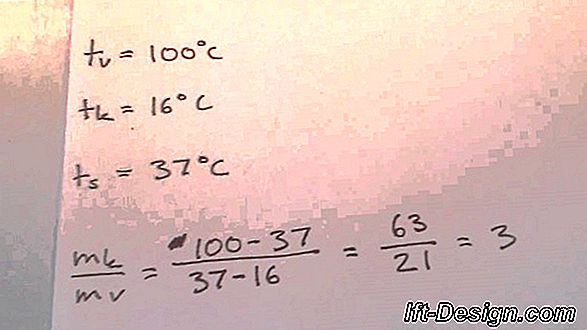 tv = 100°C
tk = 16°C
ts = 37°C
mk/mv = 100-37/37-16 = 63/21 = 3
lft-Design.com